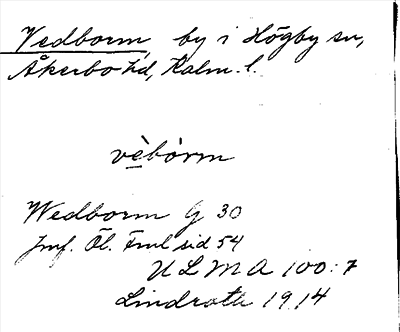 Vedborm, by i Högby sn,
Åkerbo hd, Kalm. l.
vèbórm
Wedborm G 30
Jmf. Öl. Fml sid 54
ULMA 100:7
Lindroth 1914